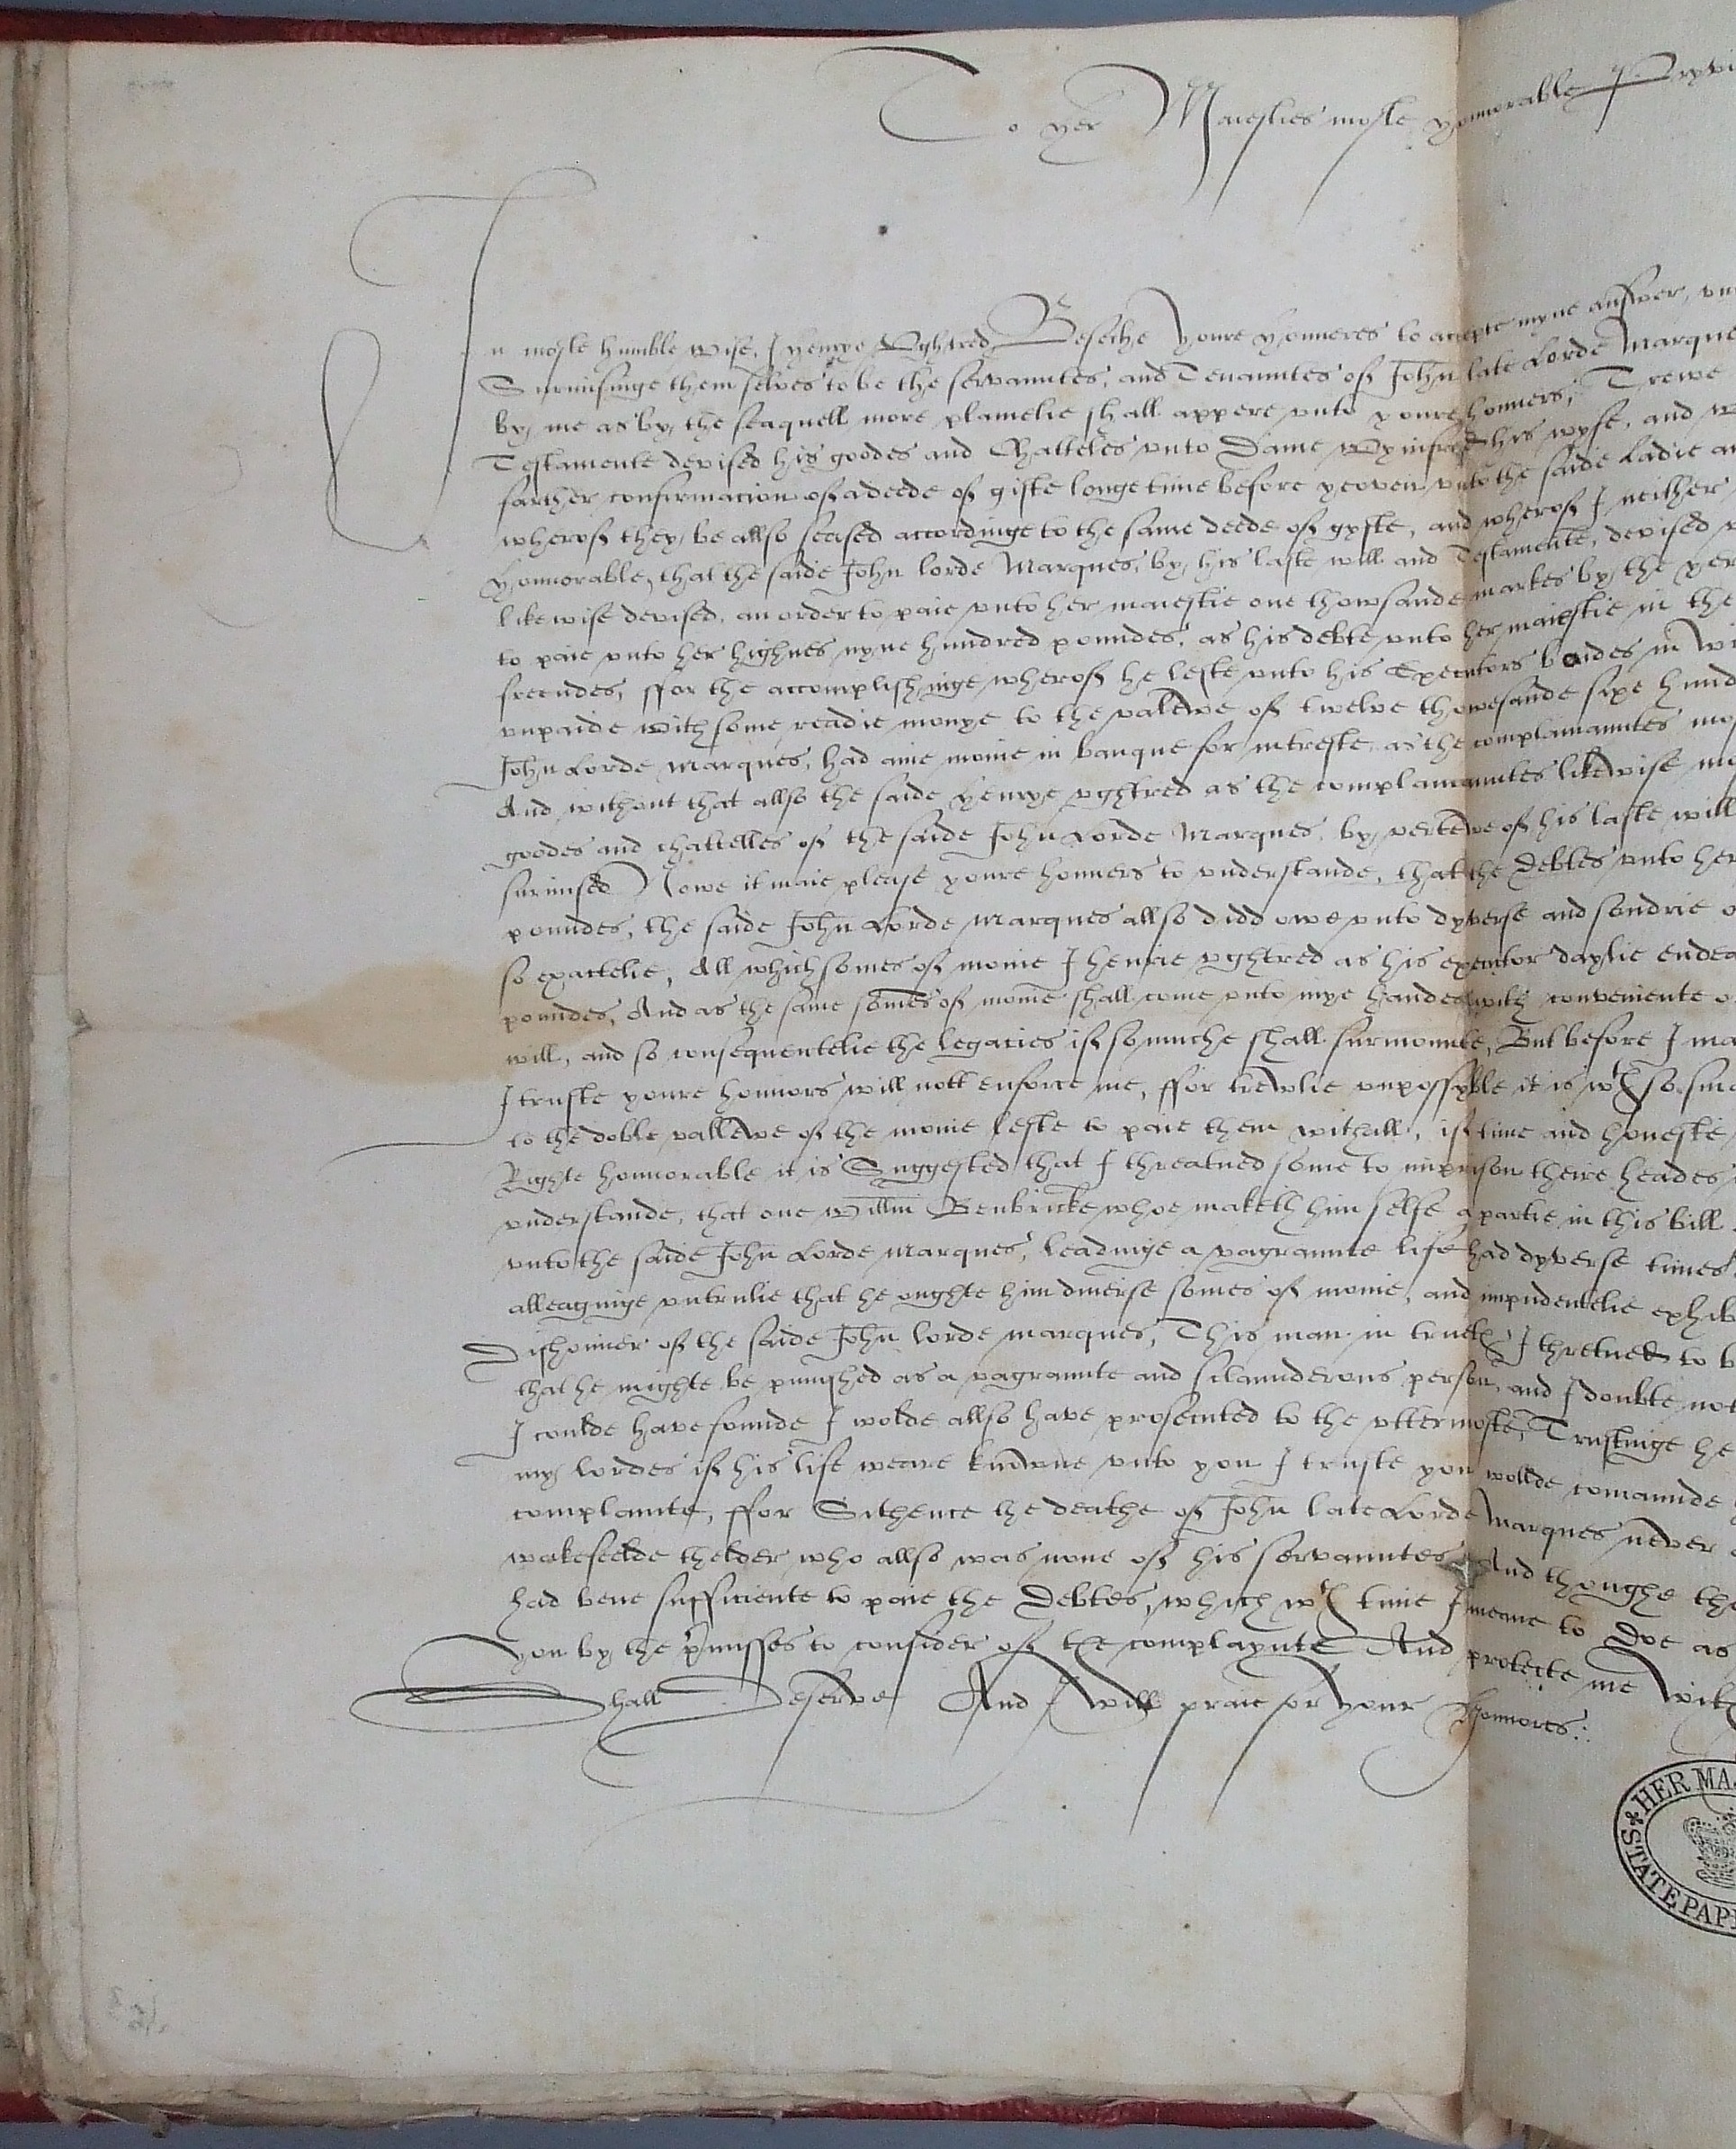 To her Maiesties moste honnorable Pryvi
In moste humble wise, I Henrye Vghtred Beseche youre Honneres to accepte myne answer, vn
Surmisinge them selves to be the servauntes, and Tenauntes of John late Lorde Marque
by me as by the seaquell more plainelie shall appere vnto youre honners, Trewe
Testamente devised his goodes and Chatteles vnto Dame Wynifred his wyfe, and
farther confirmacion of a deede of gifte longe time before yeoven vnto the saide Ladie an
wherof they be allso seased accordinge to the same deede of gyfte, and wherof I neither
Honnorable, that the saide John lorde Marques, by his laste will and Testamente, devised
likewise devised, an order to paie vnto her maiestie one thowsande markes by the yer
to paie vnto her highnes nyne hundred poundes, as his debte vnto her maiestie in the
freendes, ffor the accomplishinge wherof he lefte vnto his Executors bondes in
vnpaide with some readie monye to the valewe of twelve thowesande sixe hund
John Lorde Marques, had anie monie in banque for intreste, as the complainauntes mos
And without that allso the saide Henrye vghtred as the complainauntes likewise mo
goodes and chattelles of the saide John Lorde Marques, by vertewe of his laste will
surmised Nowe it maie please youre honners to vnderstande, that the Debtes vnto her
poundes, the saide John Lorde Marques allso didd owe vnto dyverse and sondrie
so exactelie, All which somes of monie I henrie vghtred as his executor daylie endea
poundes, And as the same somes of monie shall come vnto mye handes with conveniente
will, and so consequentelie the legacies if so muche shall surmounte, But before I ma
I truste youre honnors will nott enforce me, ffor trewlie vnpossyble it is wth so sma
to the doble vallewe of the monie lefte to paie them withall, if time and honestie
Righte honnorable it is Suggested that I threatned some to imprison theire heades
vnderstande, that one Willm Benbricke whoe maketh him selfe a partie in this bill
vnto the saide John Lorde marques, leadinge a vagraunte life had dyverse times
alleaginge vntrulie that he oughte him diuerse somes of monie, and impudentelie exhib
Dishonner of the saide John lorde marques, This man in trueth I thretned to b
that he mighte be punished as a vagraunte and sclaunderous person, and I doubte not
I coulde have founde I wolde allso have prosecuted to the vttermoste, Trustinge he
my lordes if his life weare knowne vnto you I truste you wollde comaunde
complainte, ffor Sithence the deathe of John late Lorde Marques never
wakefeelde thelder who allso was none of his servauntes And thoughe the
had bene sufficiente to paie the Debtes, which wth time I meane to doe as
you by the pmisses to consider of the complaynte And protecte me With
Shall Deserve And I will praie for your Honnores:
HER MA
STATE PAP